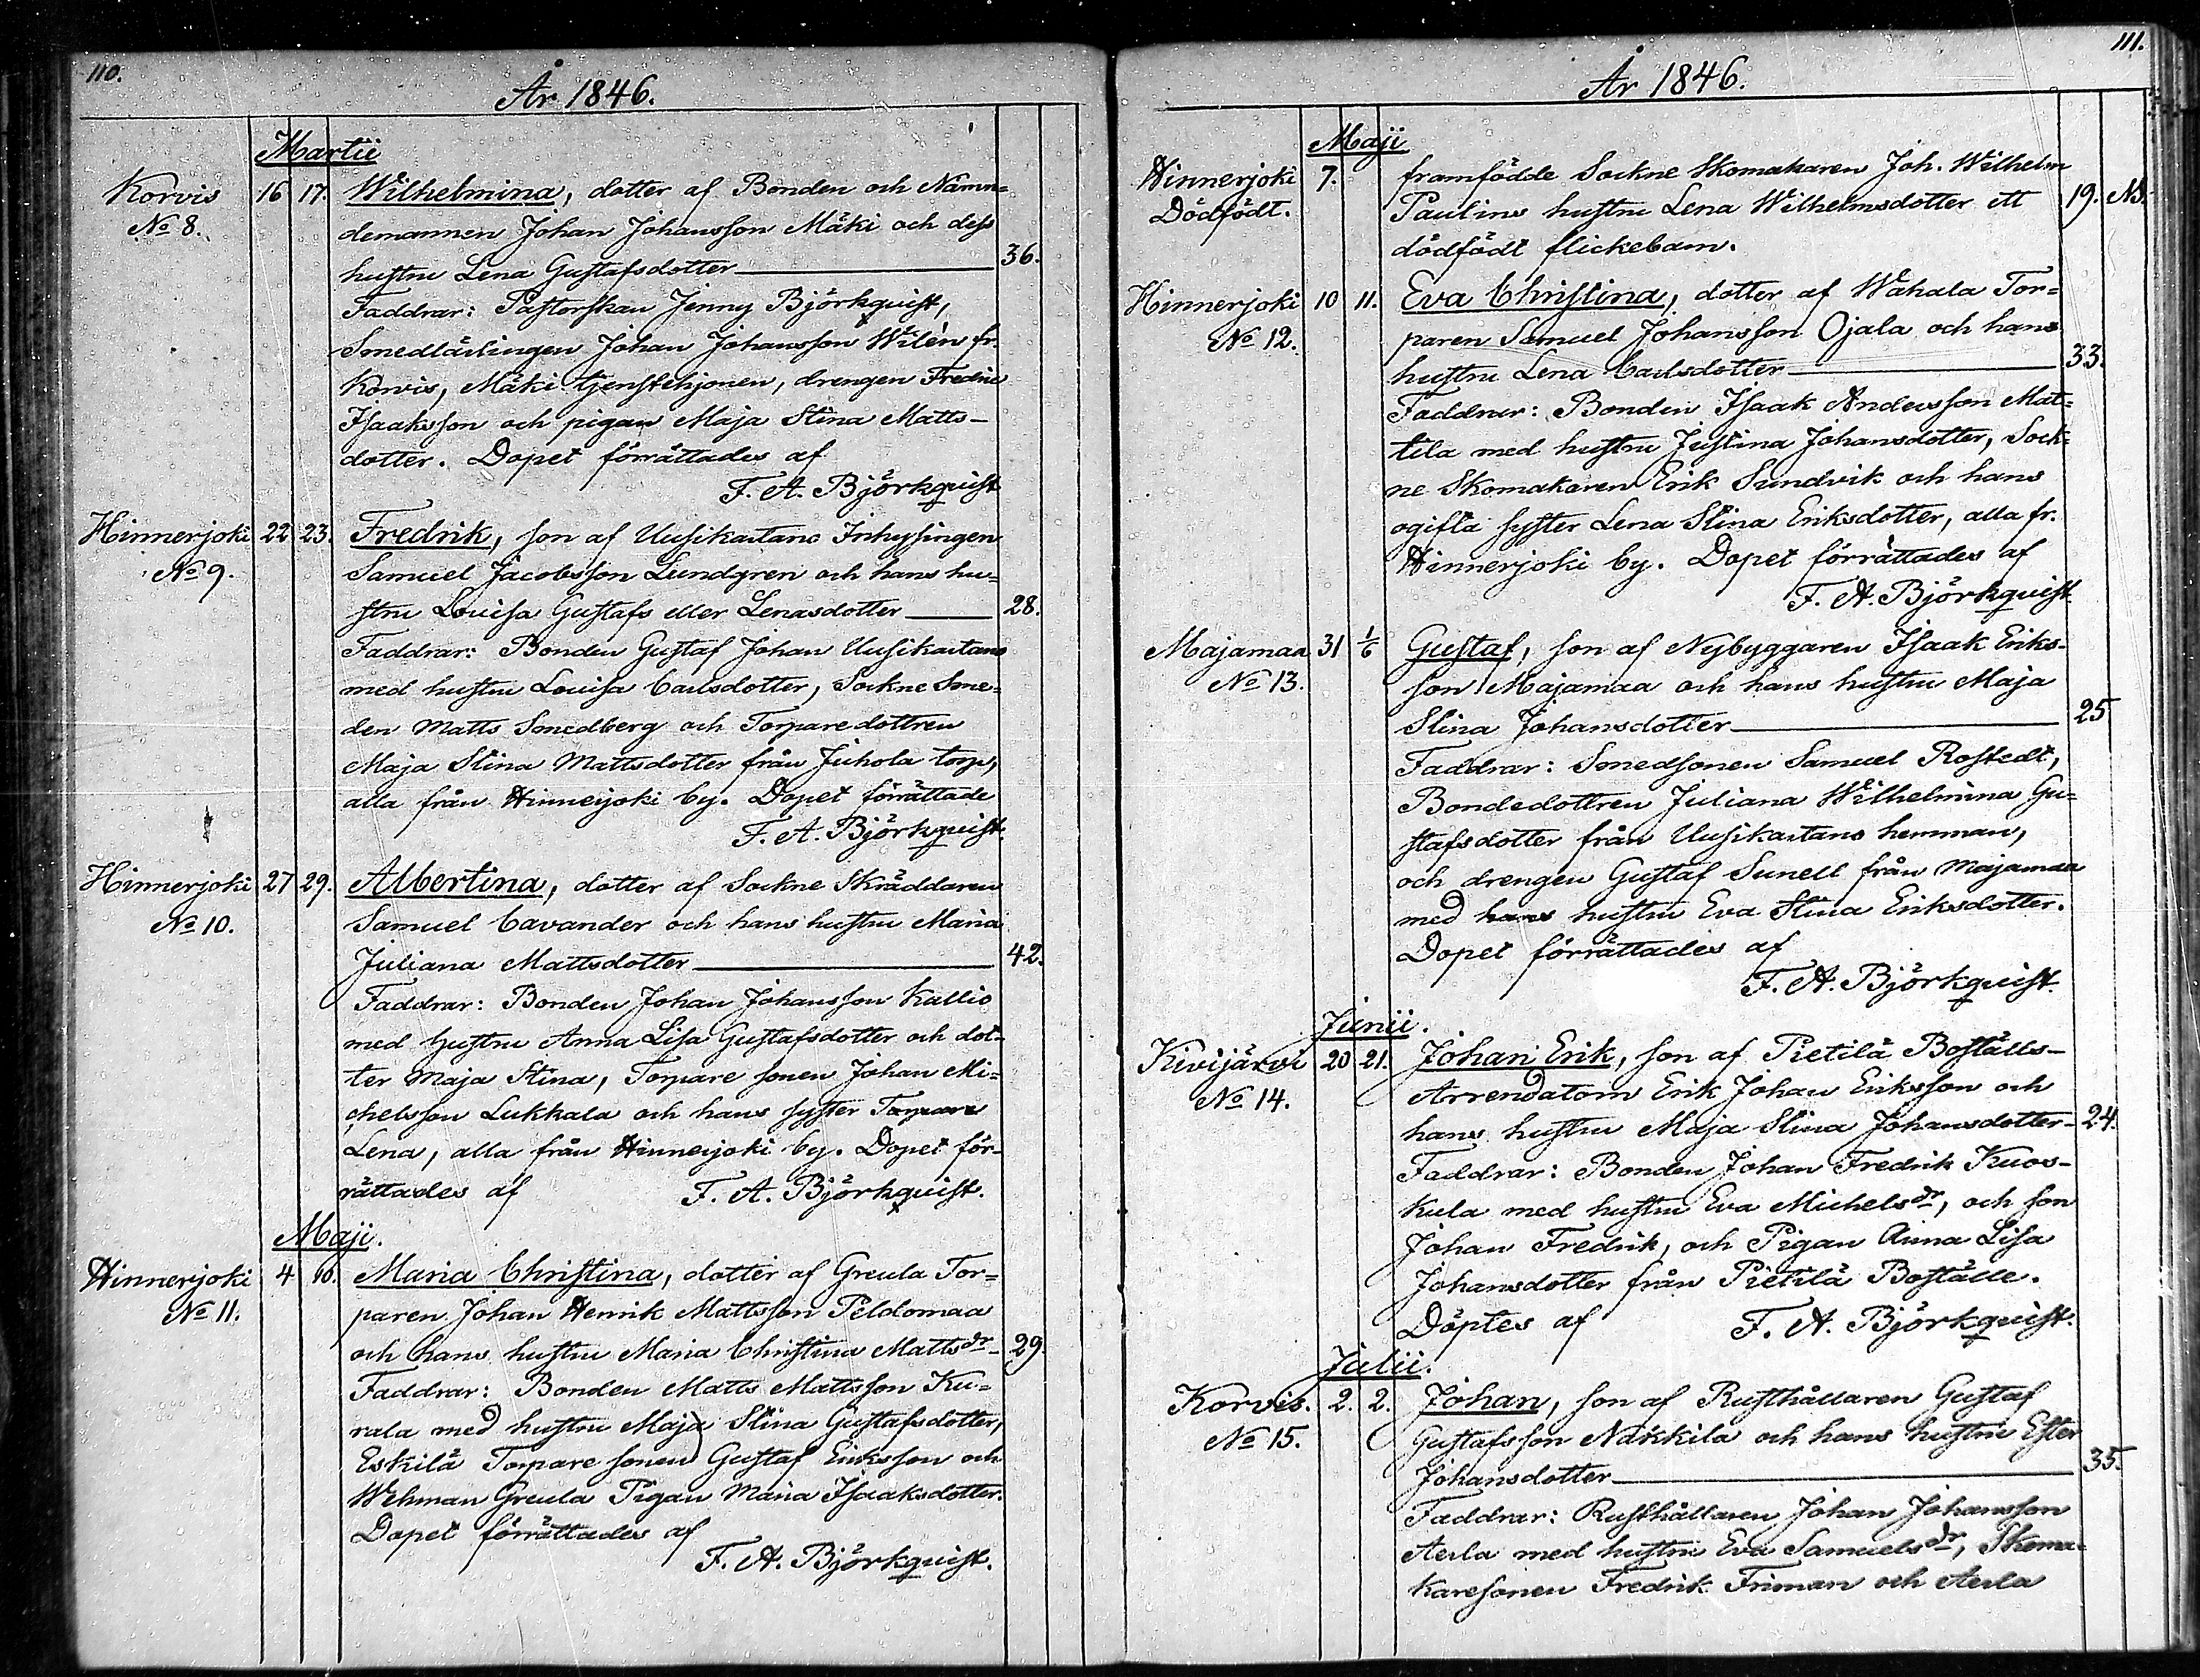 110.
År 1846.
Martii
Korvis 16 17. Wilhelmina, dotter af Bonden och Nämn=
No 8. demannen Johan Johansson Mäki och dess
hustru Lena Gustafsdotter 36.
Faddrar: Pastorskan Jenny Björkquist,
Smedlärlingen Johan Johansson Wilén fr.
Korvis, Mäki tjenstehjonen, drengen Fredric
Isaaksson och pigan Maja Stina Matts-
dotter. Dopet förrättades af
F. A. Björkquist
Hinnerjoki 22 23. Fredrik, son af Uusikartano Inhysingen
No 9. Samuel Jacobsson Lundgren och hans hu=
stru Lovisa Gustafs eller Lenasdotter 28.
Faddrar: Bonden Gustaf Johan Uusikartano
med hustru Lovisa Carlsdotter, Sockne Sme=
den Matts Smedberg och Torparedottren
Maja Stina Mattsdotter från Juhola torp,
alla från Hinnerjoki by. Dopet förrättade
F. A. Björkquist.
Hinnerjoki 27 29. Albertina, dotter af Sockne Skräddaren
No 10. Samuel Cavander och hans hustru Maria
Juliana Mattsdotter 42.
Faddrar: Bonden Johan Johansson Kallio
med hustru Anna Lisa Gustafsdotter och dot-
ter Maja Stina, Torpare sonen Johan Mi=
chelsson Lukkala och hans syster Torpare
Lena, alla från Hinnerjoki by. Dopet för-
rättades af F. A. Björkquist.
Maji.
Hinnerjoki 4 10. Maria Christina, dotter af Greula Tor=
No 11. paren Johan Henrik Mattsson Peldomaa
och hans hustru Maria Christina Mattsdr 29.
Faddrar: Bonden Matts Mattsson Ku=
rala med hustru Maja Stina Gustafsdotter,
Eskilä Torpare sonen Gustaf Eriksson och
Wehman Greula Pigan Maria Isaaksdotter.
Dopet förrättades af
F. A. Björkquist.
111.
År 1846.
Maji
Hinnerjoki 7. framfödde Sockne Skomakaren Joh. Wilhelm
Dödfödt. Paulins hustru Lena Wilhelmsdotter ett 19. NB.
dödfödt flickebarn.
Hinnerjoki 10 11. Eva Christina, dotter af Wahala Tor=
No 12. paren Samuel Johansson Ojala och hans
hustru Lena Carlsdotter 33.
Faddrar: Bonden Isaak Andersson Mat=
tila med hustru Justina Johansdotter, Sock=
ne Skomakaren Erik Sundvik och hans
ogifta syster Lena Stina Eriksdotter, alla fr.
Hinnerjoki by. Dopet förrättades af
F. A. Björkquist.
Majamaa 31 1/6 Gustaf, son af Nybyggaren Isaak Eriks-
No 13. son Majamaa och hans hustru Maja
Stina Johansdotter 25
Faddrar: Smedsonen Samuel Rostedt,
Bondedottren Juliana Wilhelmina Gu=
stafsdotter från Uusikartano hemman,
och drengen Gustaf Sunell från Majamaa
med hans hustru Eva Stina Eriksdotter.
Dopet förrättades af
F. A. Björkquist.
Junii.
Kivijärvi 20 21. Johan Erik, son af Pietilä Boställs-
No 14. Arrendatorn Erik Johan Eriksson och
hans hustru Maja Stina Johansdotter 24.
Faddrar: Bonden Johan Fredrik Kuos-
kula med hustru Eva Michelsdr, och son
Johan Fredrik, och Pigan Anna Lisa
Johansdotter från Pietilä Boställe.
Döptes af F. A. Björkquist.
Julii.
Korvis. 2. 2. Johan, son af Rusthållaren Gustaf
No 15. Gustafsson Nakkila och hans hustru Ester
Johansdotter 35.
Faddrar: Rusthållaren Johan Johansson
Aerla med hustru Eva Samuelsdr, Skoma-
karesonen Fredrik Friman och Aerla